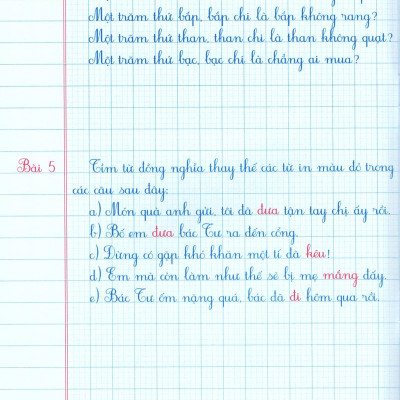 Một trăm thứ bắp, bắp chi là bắp không rang?
Một trăm thứ than, than chi là than không quạt?
Một trăm thứ bạc, bạc chi là chẳng ai mua?
Bài 5 Tìm từ đồng nghĩa thay thế các từ in màu đỏ trong
các câu sau đây:
a) Món quà anh gửi, tôi đã đưa tận tay chị ấy rồi.
b) Bố em đưa bác Tư ra đến cổng.
c) Đừng có gặp khó khăn một tí đã kêu!
d) Em mà còn làm như thế sẽ bị mẹ mắng đấy.
e) Bác Tư ốm nặng quá, bác đã đi hôm qua rồi.